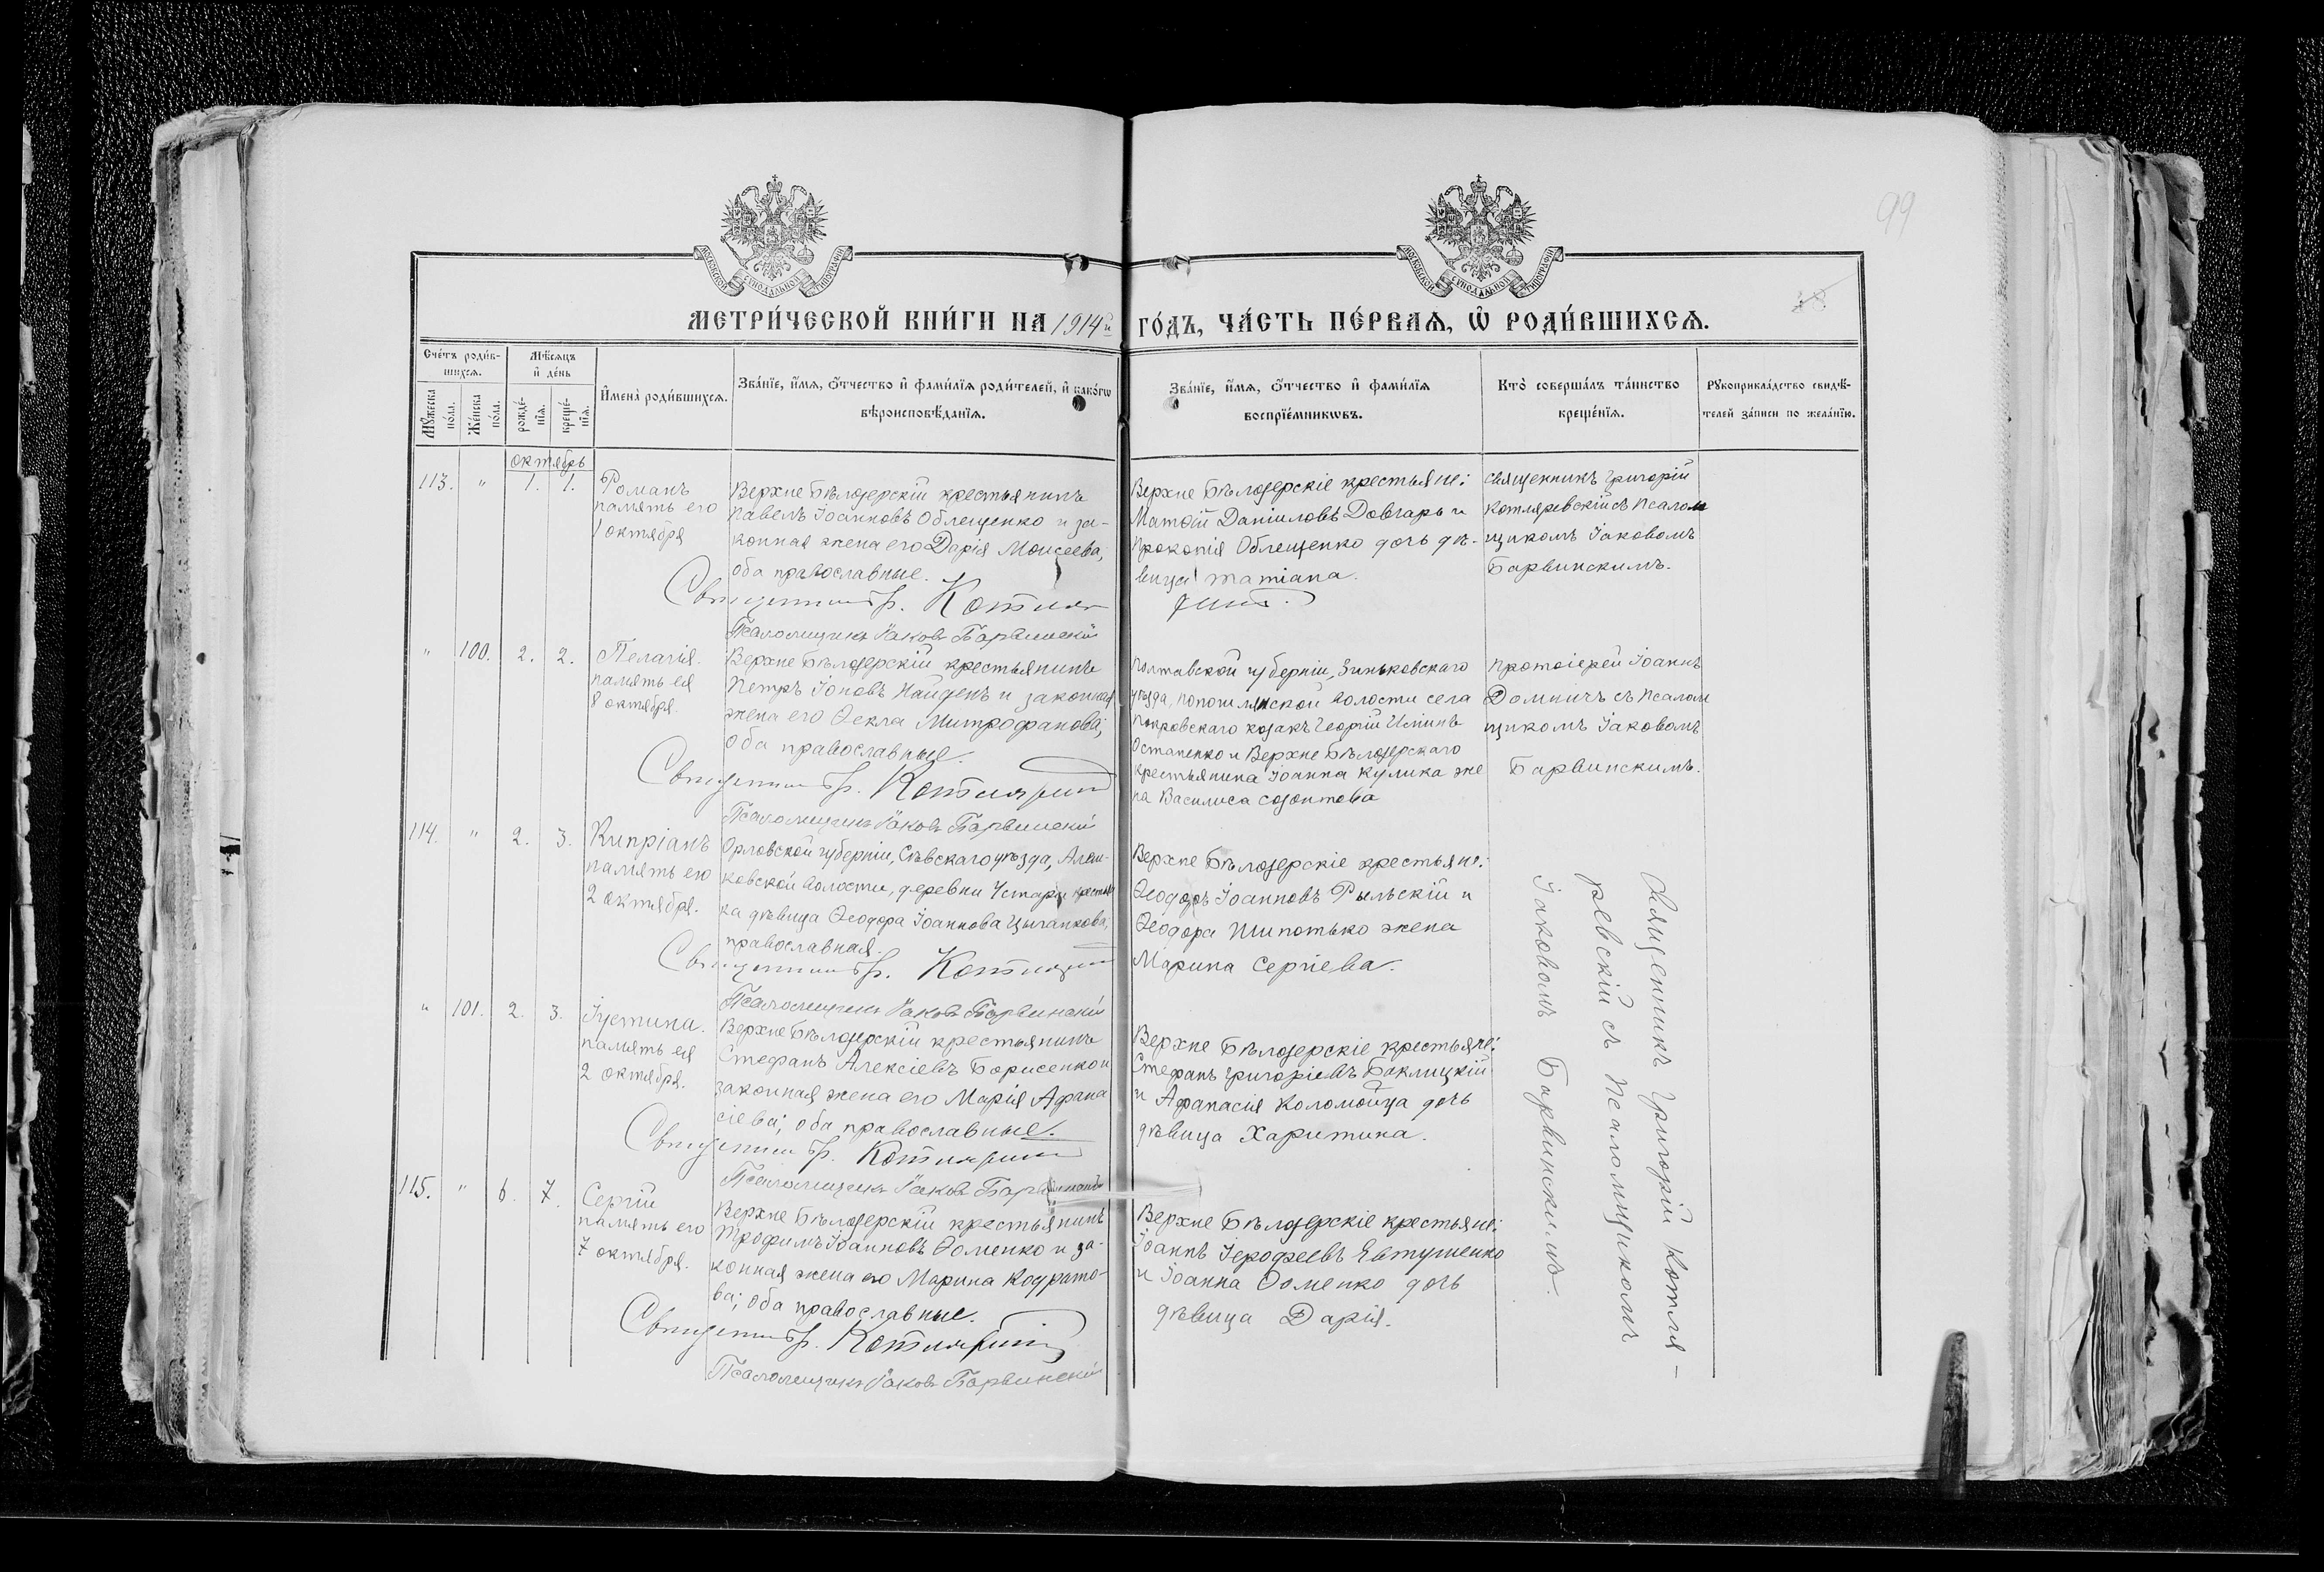 99
18
МОСКОВСКОЙ СѴНОДАЛЬНОЙ ТИПОГРАФІИ
МОСКОВСКОЙ СѴНОДАЛЬНОЙ ТИПОГРАФІИ
МЕТРИ́ЧЕСКОЙ КНИ́ГИ НА 1914й ГО́ДЪ, ЧА́СТЬ ПЕ́РВАЯ, Ѡ҆ РОДИ́ВШИХСЯ.
Сче́тъ роди́в-
шихся.
Мѣ́сяцъ
и҆ де́нь
Мꙋ́жеска по́ла.
Же́нска по́ла.
рожде́-
нїя.
креще́-
нїя.
И҆мена̀ роди́вшихся.
Зва́нїе, и҆́мя, ѻ҆́тчество и҆ фами́лїя роди́телей, и҆ како́гѡ
вѣроисповѣ́данїя.
Зва́нїе, и҆́мя, ѻ҆́тчество и҆ фами́лїя
воспрїе́мникѡвъ.
Кто̀ соверша́лъ та́инство
креще́нїя.
Рꙋкоприкла́дство свидѣ́-
телей за́писи по жела́нїю.
октябрь
113. " 1. 1.
Романъ
память его
1 октября
Верхне Бѣлозерскій крестьянинъ
Павелъ Іоанновъ Облещенко и за-
конная жена его Дарія Моисеева,
оба православные.
Священникъ Гр. Котляр
Псаломщикъ Іаковъ Барвинскій
Верхне Бѣлозерскіе крестьяне:
Матѳій Даніиловъ Довгарь и
Прокопія Облещенко дочь дѣ-
вица Татіана.
Священникъ Григорій
Котляревскій съ псалом
щикомъ Іаковомъ
Барвинскимъ.
" 100. 2. 2.
Пелагія.
память ея
8 октября.
Верхне Бѣлозерскій крестьянинъ
Петръ Іоновъ Найденъ и законная
жена его Ѳекла Митрофанова,
оба православные.
Священникъ Гр. Котляревскій
Псаломщикъ Іаковъ Барвинскій
Полтавской губерніи, Зиньковскаго
уѣзда, волости села
Покровскаго козакъ Георгій
Остапенко и Верхне Бѣлозерскаго
крестьянина Іоанна Кулика же
на Василиса Созонтова
Протоіерей Іоаннъ
Домничъ съ псалом
щикомъ Іаковомъ
Барвинскимъ.
114. " 2. 3.
Кипріанъ
память его
2 октября.
Орловской губерніи, Сѣвскаго уѣзда,
волости, деревни
ка дѣвица Ѳеодора Іоаннова Цыганкова,
православная.
Священникъ Гр. Котляревскій
Псаломщикъ Іаковъ Барвинскій
Верхне Бѣлозерскіе крестьяне:
Ѳеодоръ Іоанновъ Рыльскій и
Ѳеодора Шипотько жена
Марина Сергіева.
Священникъ Григорій Котля-
ревскій съ псаломщикомъ
Іаковомъ Барвинскимъ.
" 101. 2. 3.
Іустина.
память ея
2 октября.
Верхне Бѣлозерскій крестьянинъ
Стефанъ Алексіевъ Борисенко и
законная жена его Марія Афана
сіева; оба православные.
Священникъ Гр. Котляревскій
Псаломщикъ Іаковъ Барвинскій
Верхне Бѣлозерскіе крестьяне:
Стефанъ Григоріевъ Баклицкій
и Афанасія Коломойца дочь
дѣвица Харитина.
115. " 6. 7.
Сергій
память его
7 октября.
Верхне Бѣлозерскій крестьянинъ
Трофимъ Іоанновъ Ѳоменко и за-
конная жена его Марина Кодрато-
ва; оба православные.
Священникъ Гр. Котляревскій
Псаломщикъ Іаковъ Барвинскій
Верхне Бѣлозерскіе крестьяне:
Іоаннъ Іерофеевъ Евтушенко
и Іоанна Ѳоменко дочь
дѣвица Дарія.